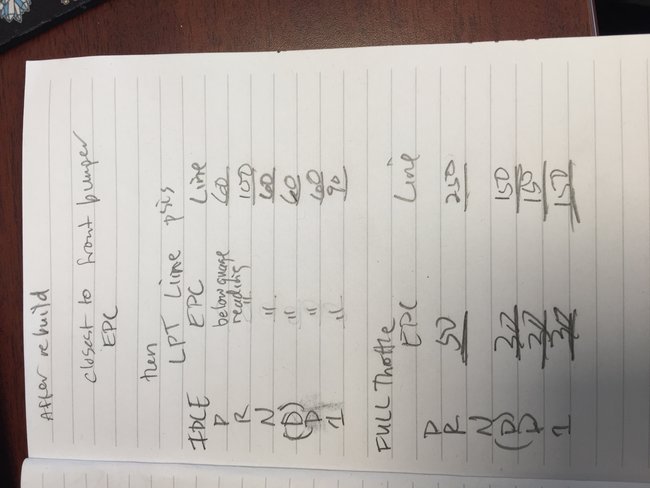 After rebuild
closest to front bumper
EPC
then
LPT Line psis
IDLE EPC Line
P below guage reading 60
R " 100
N " 60
(D) " 60
D " 60
1 " 90
FULL Throttle
EPC Line
P
R 50 250
N
(D 30 150
D 30 150
1 30 150